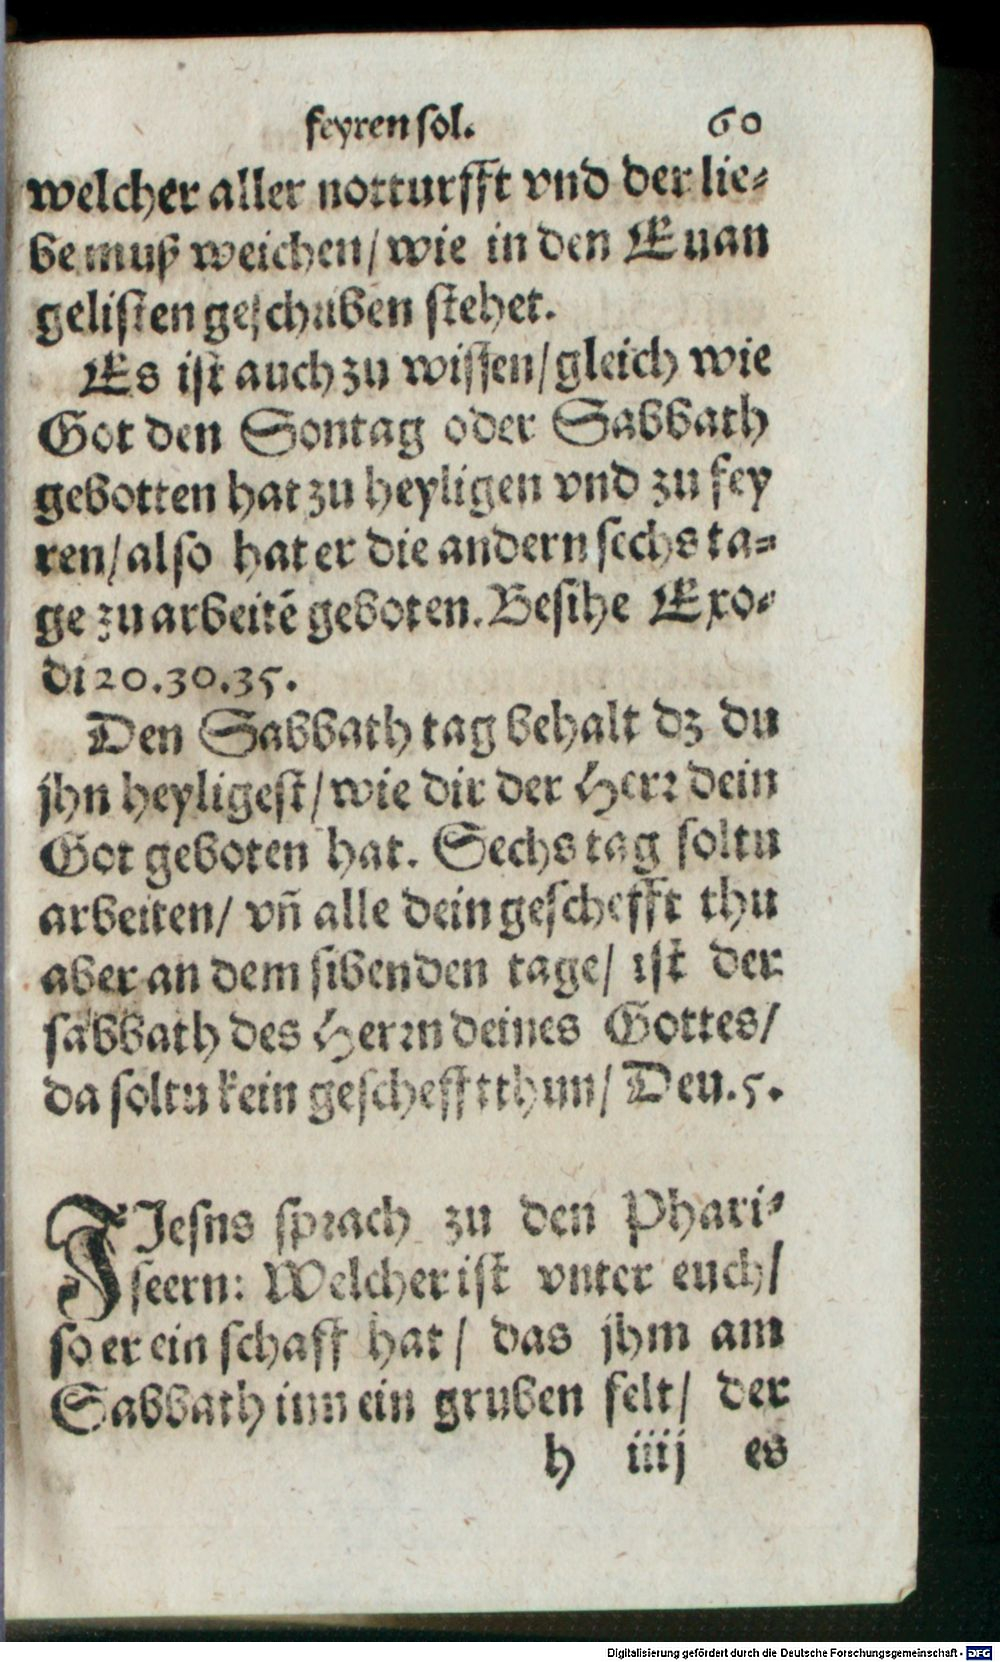 feyren sol. 60
welcher aller notturfft vnd der lie-
be muß weichen/ wie in den Euan
gelisten geschriben stehet.
Es ist auch zu wissen/ gleich wie
Got den Sontag oder Sabbath
gebotten hat zu heyligen vnd zu fey
ren/ also hat er die andern sechs ta-
ge zu arbeitē geboten. Besihe Exo-
di 20.30.35.
Den Sabbath tag behalt dz du
jhn heyligest/ wie dir der Herr dein
Got geboten hat. Sechs tag soltu
arbeiten/ vñ alle dein geschefft thu
aber an dem sibenden tage/ ist der
sabbath des Herrn deines Gottes/
da soltu kein geschefft thun/ Deu.5.
JJesns sprach zu den Phari-
seern: Welcher ist vnter euch/
so er ein schaff hat/ das jhm am
Sabbath inn ein gruben felt/ der
h iiij es
Digitalisierung gefördert durch die Deutsche Forschungsgemeinschaft - DFG